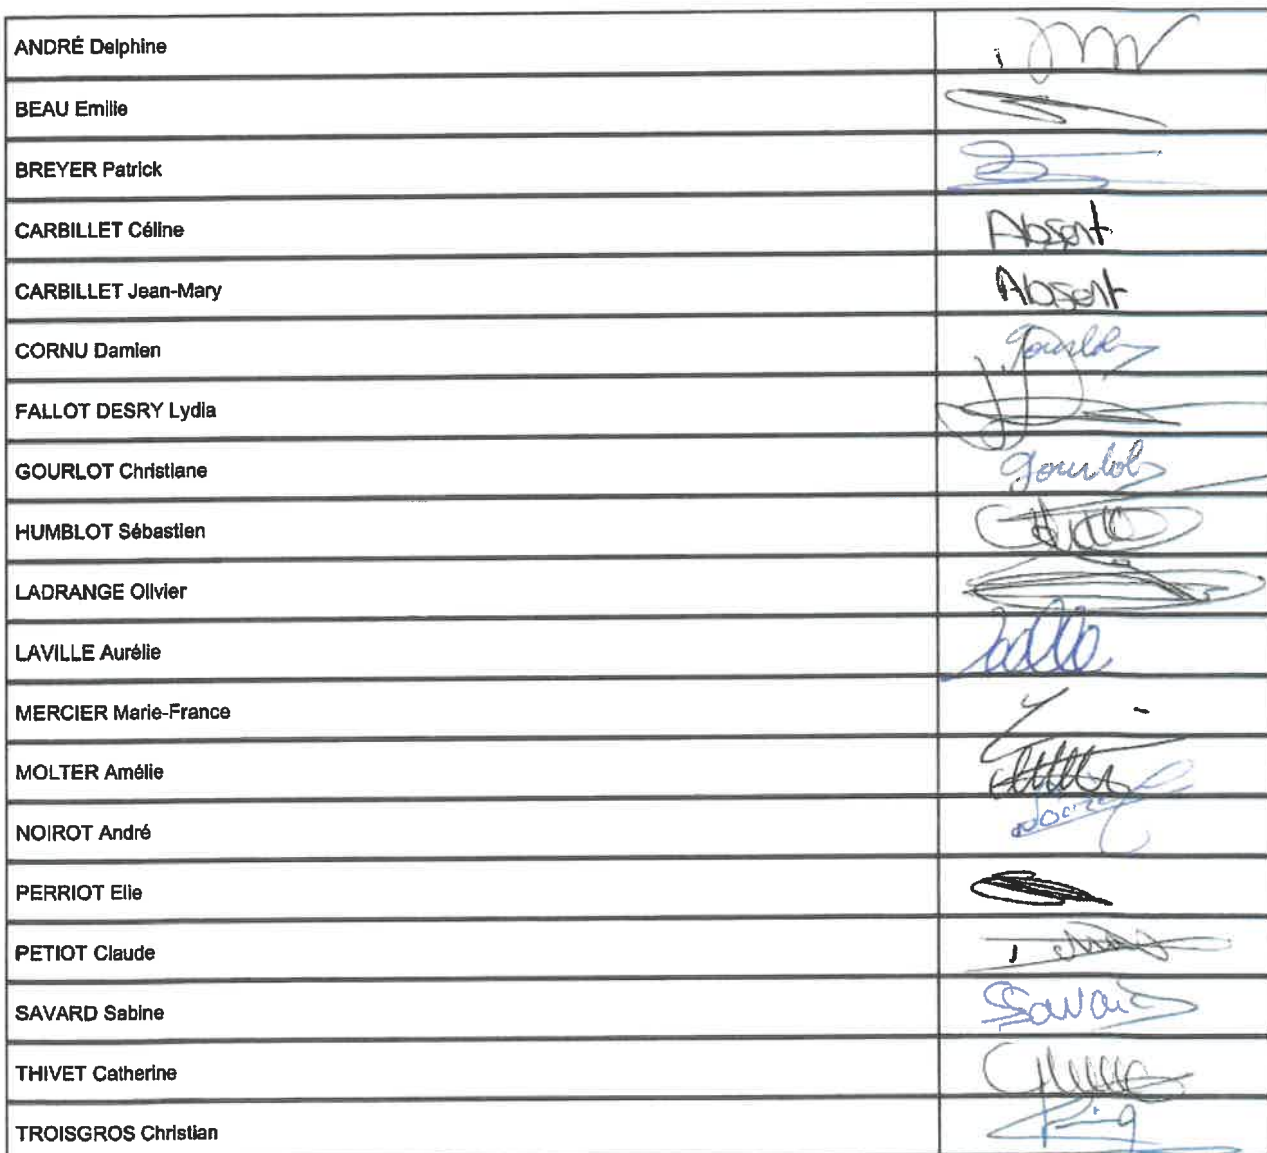 ANDRÉ Delphine
BEAU Emilie
BREYER Patrick
CARBILLET Céline Absent
CARBILLET Jean-Mary Absent
CORNU Damien Gourlot
FALLOT DESRY Lydia
GOURLOT Christiane Gourlot
HUMBLOT Sébastien
LADRANGE Olivier
LAVILLE Aurélie
MERCIER Marie-France
MOLTER Amélie
NOIROT André
PERRIOT Elie
PETIOT Claude
SAVARD Sabine
THIVET Catherine
TROISGROS Christian